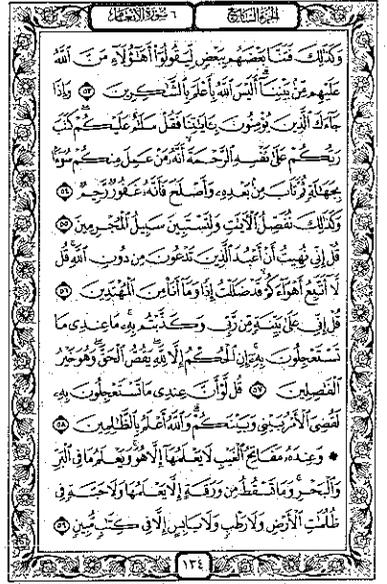 ٦ سورة الأنعام الجزء السابع
وَكَذَٰلِكَ فَتَنَّا بَعْضَهُم بِبَعْضٍ لِّيَقُولُوٓا۟ أَهَٰٓؤُلَآءِ مَنَّ ٱللَّهُ
عَلَيْهِم مِّنۢ بَيْنِنَآ أَلَيْسَ ٱللَّهُ بِأَعْلَمَ بِٱلشَّٰكِرِينَ ٥٣ وَإِذَا
جَآءَكَ ٱلَّذِينَ يُؤْمِنُونَ بِـَٔايَٰتِنَا فَقُلْ سَلَٰمٌ عَلَيْكُمْ كَتَبَ
رَبُّكُمْ عَلَىٰ نَفْسِهِ ٱلرَّحْمَةَ أَنَّهُۥ مَنْ عَمِلَ مِنكُمْ سُوٓءًۢا
بِجَهَٰلَةٍ ثُمَّ تَابَ مِنۢ بَعْدِهِۦ وَأَصْلَحَ فَأَنَّهُۥ غَفُورٌ رَّحِيمٌ ٥٤
وَكَذَٰلِكَ نُفَصِّلُ ٱلْـَٔايَٰتِ وَلِتَسْتَبِينَ سَبِيلُ ٱلْمُجْرِمِينَ ٥٥
قُلْ إِنِّى نُهِيتُ أَنْ أَعْبُدَ ٱلَّذِينَ تَدْعُونَ مِن دُونِ ٱللَّهِ قُل
لَّآ أَتَّبِعُ أَهْوَآءَكُمْ قَدْ ضَلَلْتُ إِذًا وَمَآ أَنَا۠ مِنَ ٱلْمُهْتَدِينَ ٥٦
قُلْ إِنِّى عَلَىٰ بَيِّنَةٍ مِّن رَّبِّى وَكَذَّبْتُم بِهِۦ مَا عِندِى مَا
تَسْتَعْجِلُونَ بِهِۦٓ إِنِ ٱلْحُكْمُ إِلَّا لِلَّهِ يَقُصُّ ٱلْحَقَّ وَهُوَ خَيْرُ
ٱلْفَٰصِلِينَ ٥٧ قُل لَّوْ أَنَّ عِندِى مَا تَسْتَعْجِلُونَ بِهِۦ
لَقُضِىَ ٱلْأَمْرُ بَيْنِى وَبَيْنَكُمْ وَٱللَّهُ أَعْلَمُ بِٱلظَّٰلِمِينَ ٥٨
۞ وَعِندَهُۥ مَفَاتِحُ ٱلْغَيْبِ لَا يَعْلَمُهَآ إِلَّا هُوَ وَيَعْلَمُ مَا فِى ٱلْبَرِّ
وَٱلْبَحْرِ وَمَا تَسْقُطُ مِن وَرَقَةٍ إِلَّا يَعْلَمُهَا وَلَا حَبَّةٍ فِى
ظُلُمَٰتِ ٱلْأَرْضِ وَلَا رَطْبٍ وَلَا يَابِسٍ إِلَّا فِى كِتَٰبٍ مُّبِينٍ ٥٩
١٣٤